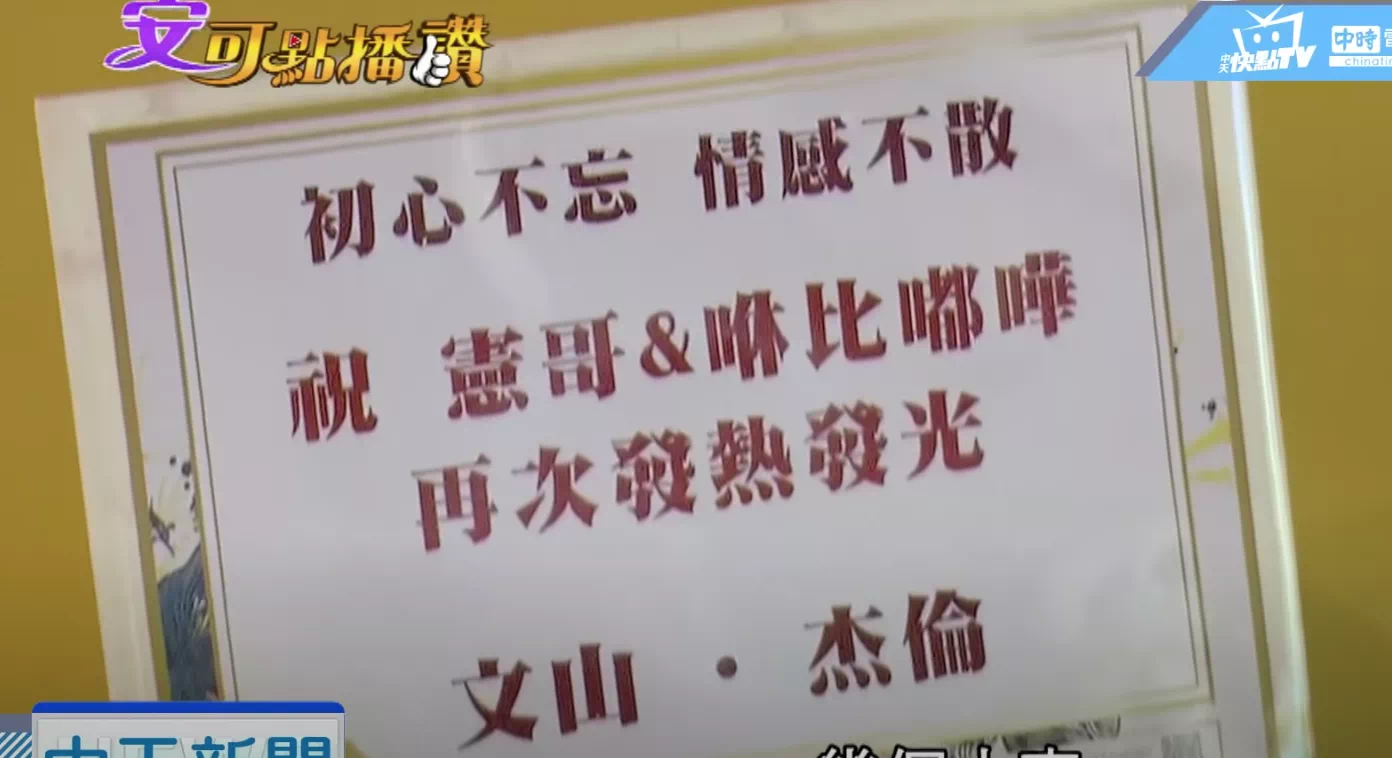 安可點播讚
中天快點TV
中時
初心不忘 情感不散
祝 憲哥&咻比嘟嘩
再次發熱發光
文山 · 杰倫